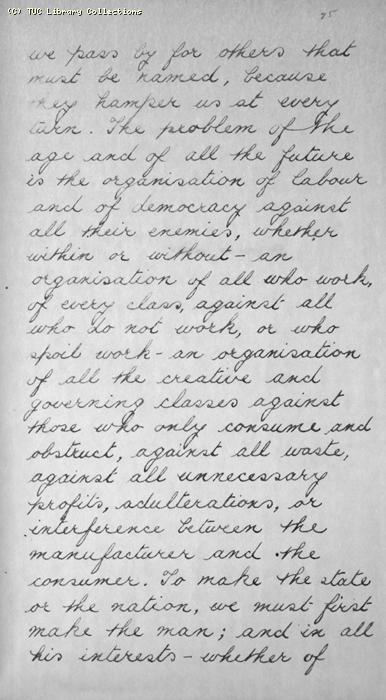 (C) TUC Library Collections
75
we pass by for others that
must be named, because
they hamper us at every
turn. The problem of the
age and of all the future
is the organisation of labour
and of democracy against
all their enemies, whether
within or without - an
organisation of all who work,
of every class, against all
who do not work, or who
spoil work - an organisation
of all the creative and
governing classes against
those who only consume and
obstruct, against all waste,
against all unnecessary
profits, adulterations, or
interference between the
manufacturer and the
consumer. To make the state
or the nation, we must first
make the man; and in all
his interests - whether of